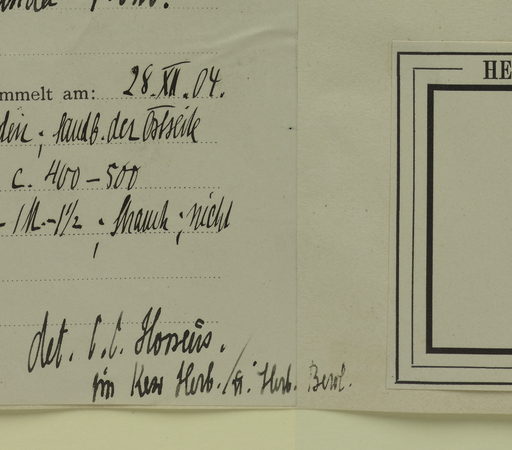 mmelt am: 28.XII.04.
HE
der Ostseite
c. 400–500
1 M.–1½ ; Strauch ; nicht
det. C. C. Hosseus.
im Kew Herb. / u. Herb. Berol.